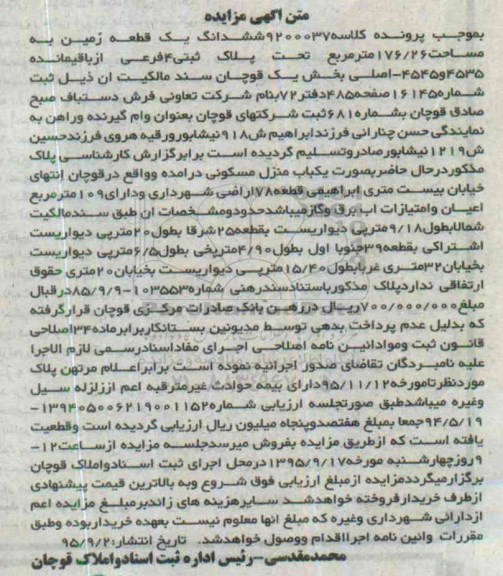 متن آگهی مزایده
بموجب پرونده کلاسه۹۲۰۰۰۳۷ششدانگ یک قطعه زمین به
مساحت۱۷۶/۲۶مترمربع تحت پلاک ثبتی۴فرعی ازباقیمانده
۴۵۳۵و۴۵۴۵-اصلی بخش یک قوچان سند مالکیت ان ذیل ثبت
شماره۱۶۱۴۵صفحه۴۸۵دفتر۷۲بنام شرکت تعاونی فرش دستباف صبح
صادق قوچان بشماره۶۸۱ثبت شرکتهای قوچان بعنوان وام گیرنده وراهن به
نمایندگی حسن چنارانی فرزندابراهیم ش۹۱۸نیشابورورقیه هروی فرزندحسین
ش۱۲۱۹نیشابورصادروتسلیم گردیده است برابرگزارش کارشناسی پلاک
مذکوردرحال حاضربصورت یکباب منزل مسکونی درامده وواقع درقوچان انتهای
خیابان بیست متری ابراهیمی قطعه۷۸اراضی شهرداری ودارای۱۰۹مترمربع
اعیان وامتیازات اب برق وگازمیباشدحدودومشخصات ان طبق سندمالکیت
شمالابطول۹/۱۸مترپی دیواریست بقطعه۲۵شرقا بطول۲۰مترپی دیواریست
اشتراکی بقطعه۳۹جنوبا اول بطول۴/۹۰متریخی بطول۶/۵مترپی دیواریست
بخیابان۳۲متری غربابطول۱۵/۴۰مترپی دیواریست بخیابان۲۰متری حقوق
ارتفاقی نداردپلاک مذکورباستنادسندرهنی شماره۱۰۳۵۵۳-۸۵/۹/۹درقبال
مبلغ۷۰۰/۰۰۰/۰۰۰ریال دررهین بانک صادرات مرکزی قوچان قرارگرفته
که بدلیل عدم پرداخت بدهی توسط مدیونین بستانکاربرابرماده۳۴اصلاحی
قانون ثبت وموادائین نامه اصلاحی اجرای مفاداسنادرسمی لازم الاجرا
علیه نامبردگان تقاضای صدور اجرائیه نموده است برابراعلام مرتهن پلاک
موردنظرتامورخه۹۵/۱۱/۱۲دارای بیمه حوادث غیرمترقبه اعم اززلزله سیل
وغیره میباشدطبق صورتجلسه ارزیابی شماره۱۳۹۴۰۵۰۰۶۲۱۹۰۰۱۱۵۲-
۹۴/۵/۱۹جمعا بمبلغ هفتصدوپنجاه میلیون ریال ارزیابی گردیده است وقطعیت
یافته است که ازطریق مزایده بفروش میرسدجلسه مزایده ازساعت۱۲-
۹روزچهارشنبه مورخه۱۳۹۵/۹/۱۷درمحل اجرای ثبت اسنادواملاک قوچان
برگزارمیگرددمزایده ازمبلغ ارزیابی فوق شروع وبه بالاترین قیمت پیشنهادی
ازطرف خریدارفروخته خواهدشد سایرهزینه های زائدبرمبلغ مزایده اعم
ازدارائی شهرداری وغیره که مبلغ انها معلوم نیست بعهده خریداربوده وطبق
مقررات وائین نامه اجرااقدام ووصول خواهدشد. تاریخ انتشار:۹۵/۹/۲
محمدمقدسی-رئیس اداره ثبت اسنادواملاک قوچان